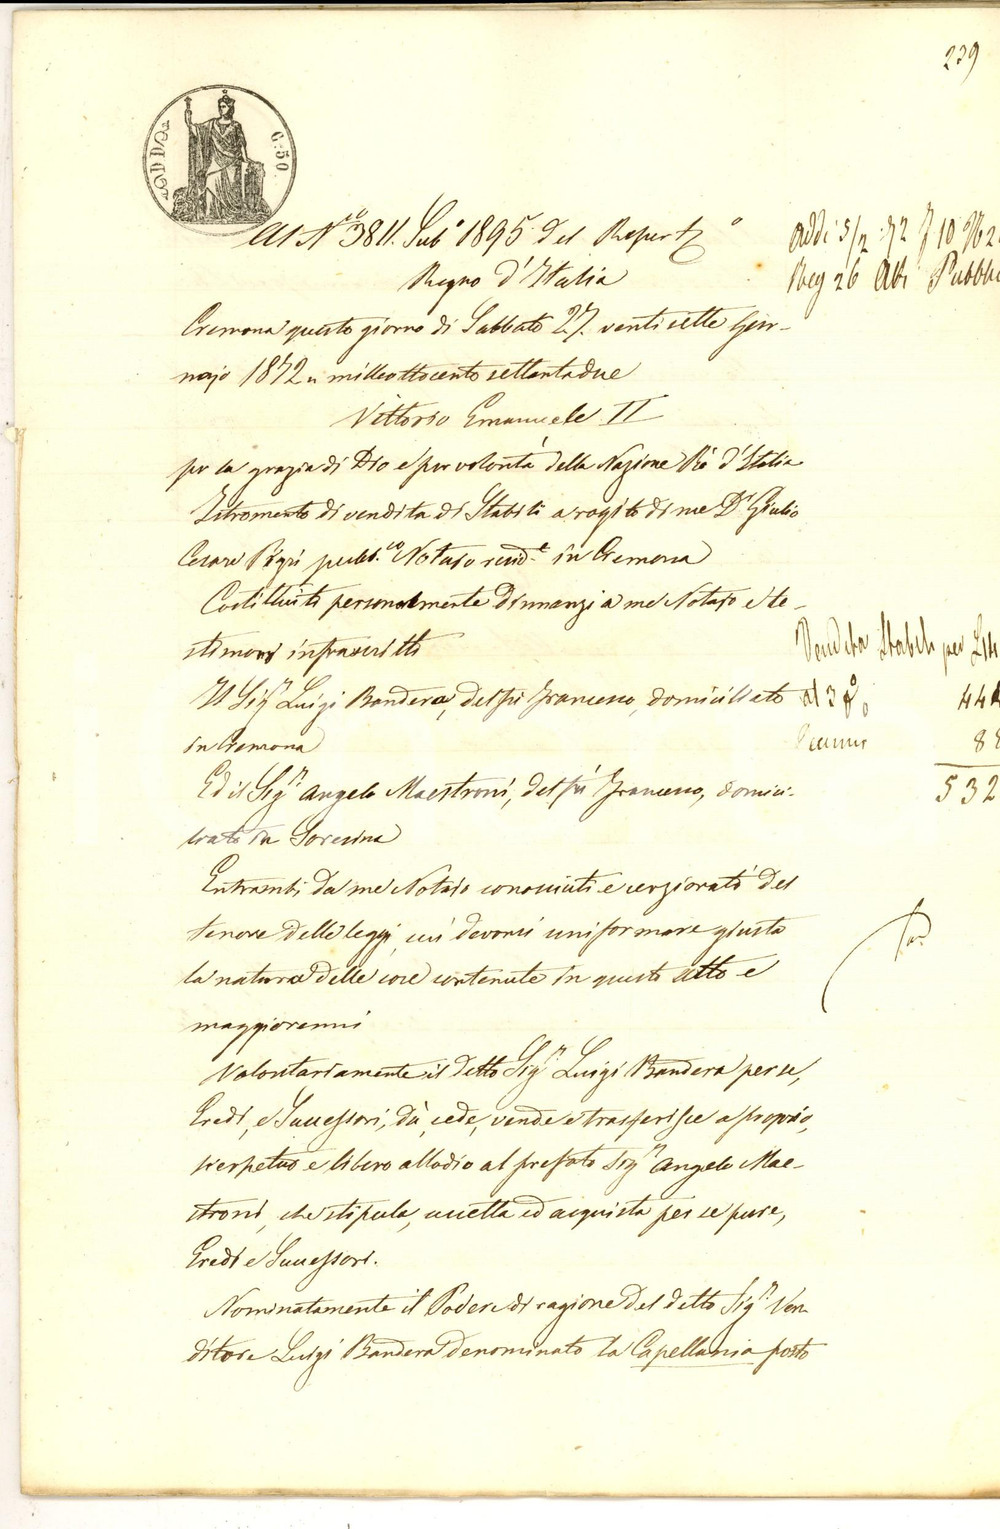 239
C. 50
Al N.ro 3811. Sub.o 1895 del Repert.o
Regno d'Italia
Addi 5/2 72
Reg 26 Atti Pubbli
Cremona questo giorno di Sabbato 27. venti sette Gen-
najo 1872 milleottocento settantadue
Vittorio Emanuele II
per la grazia di Dio e per volontà della Nazione Rè d'Italia
Istromento di vendita di Stabili a rogito di me Dr Giulio
Cesare pubb.co Notajo resid.e in Cremona
Costituiti personalmente dinnanzi a me Notajo e te-
stimonj infrascritti
Il Sig.r Luigi Bandera, del fu Francesco, domiciliato
in Cremona
Ed il Sig.r Angelo Maestroni, del fu Francesco, domici-
liato in Soresina
Vendita Stabili per
al 3 %
44
8
532
Entrambi da me Notajo conosciuti e cerziorati del
tenore delle leggi, cui devonsi uniformare giusta
la natura delle cose contenute in questo atto e
maggiorenni
Volontariamente il detto Sig.r Luigi Bandera per se,
Eredi, e Successori, dà, cede, vende e trasferisce a proprio,
perpetuo e libero allodio al prefato Sig.r Angelo Mae-
stroni, che stipula, accetta ed acquista per se pure,
Eredi e Successori.
Nominatamente il Podere di ragione del detto Sig.r Ven
ditore Luigi Bandera denominato la Capellania posto